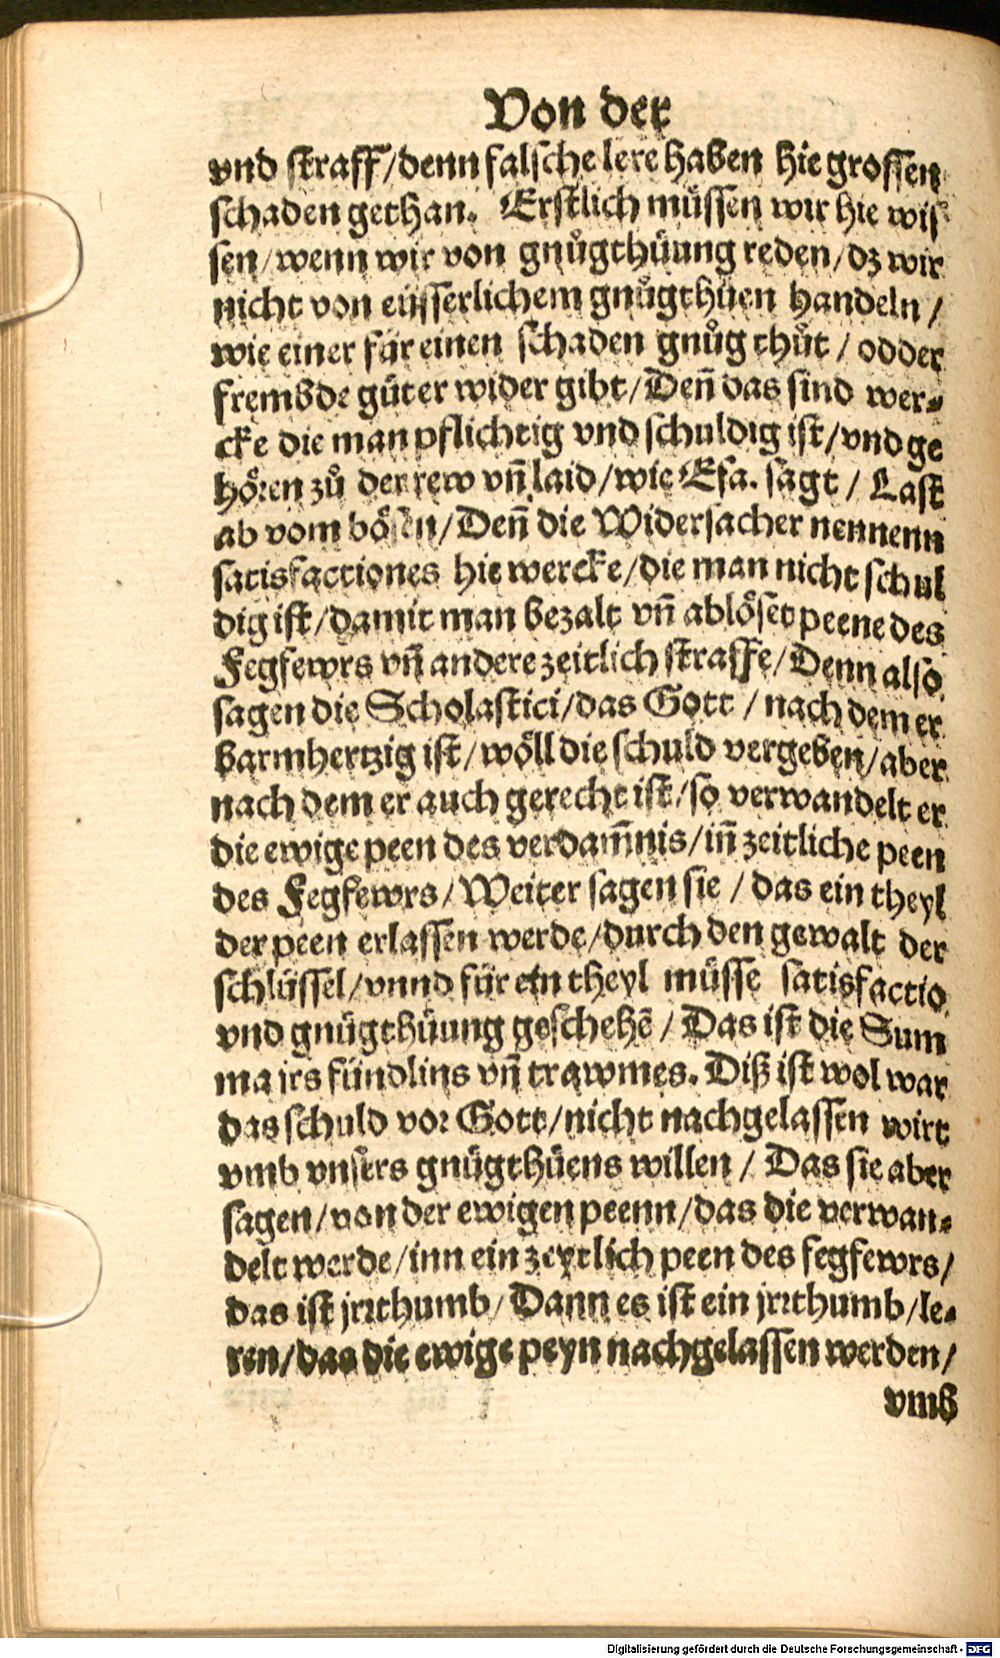 Von der
vnd straff/denn falsche lere haben hie grossen
schaden gethan. Erstlich müssen wir hie wis
sen/wenn wir von gnůgthüung reden/dz wir
nicht von eüsserlichem gnůgthüen handeln /
wie einer für einen schaden gnůg thůt / odder
frembde güter wider gibt/Deñ das sind wer-
cke die man pflichtig vnd schuldig ist/vnd ge
hören zů der rew vñ laid/wie Esa. sagt / Last
ab vom bösen/Deñ die Widersacher nennenn
satisfactiones hie wercke/die man nicht schul
dig ist/damit man bezalt vñ ablöset peene des
Fegfewrs vñ andere zeitlich straffe/Denn also
sagen die Scholastici/das Gott / nach dem er
barmhertzig ist/wöll die schuld vergeben/aber
nach dem er auch gerecht ist/so verwandelt er
die ewige peen des verdam̃nis/iñ zeitliche peen
des Fegfewrs/Weiter sagen sie / das ein theyl
der peen erlassen werde/durch den gewalt der
schlüssel/vnnd für ein theyl müsse satisfactio
vnd gnügthüung geschehē / Das ist die Sum
ma jrs fündlins vñ trawmes. Diß ist wol war
das schuld vor Gott/nicht nachgelassen wirt
vmb vnsers gnügthüens willen / Das sie aber
sagen/von der ewigen peenn/das die verwan-
delt werde/inn ein zeytlich peen des fegfewrs/
das ist jrrthumb/Dann es ist ein jrrthumb/le-
ren/das die ewige peyn nachgelassen werden/
vmb
Digitalisierung gefördert durch die Deutsche Forschungsgemeinschaft - DFG